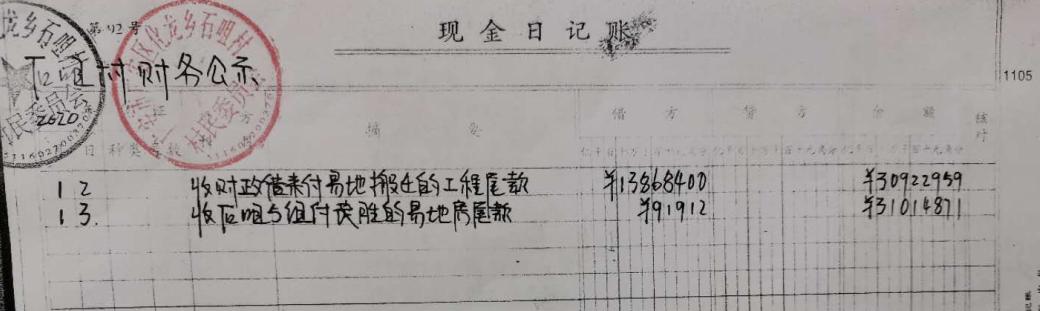 第42号
现金日记账
石咀村财务公示
2020
1105
摘要
借方
贷方
余额
核对
日 种类 号数
1 2 收财政借来付易地搬迁的工程尾款 ¥13868400 ¥30922959
1 3. 收石咀5组付茂胜的易地房尾款 ¥91912 ¥31014871